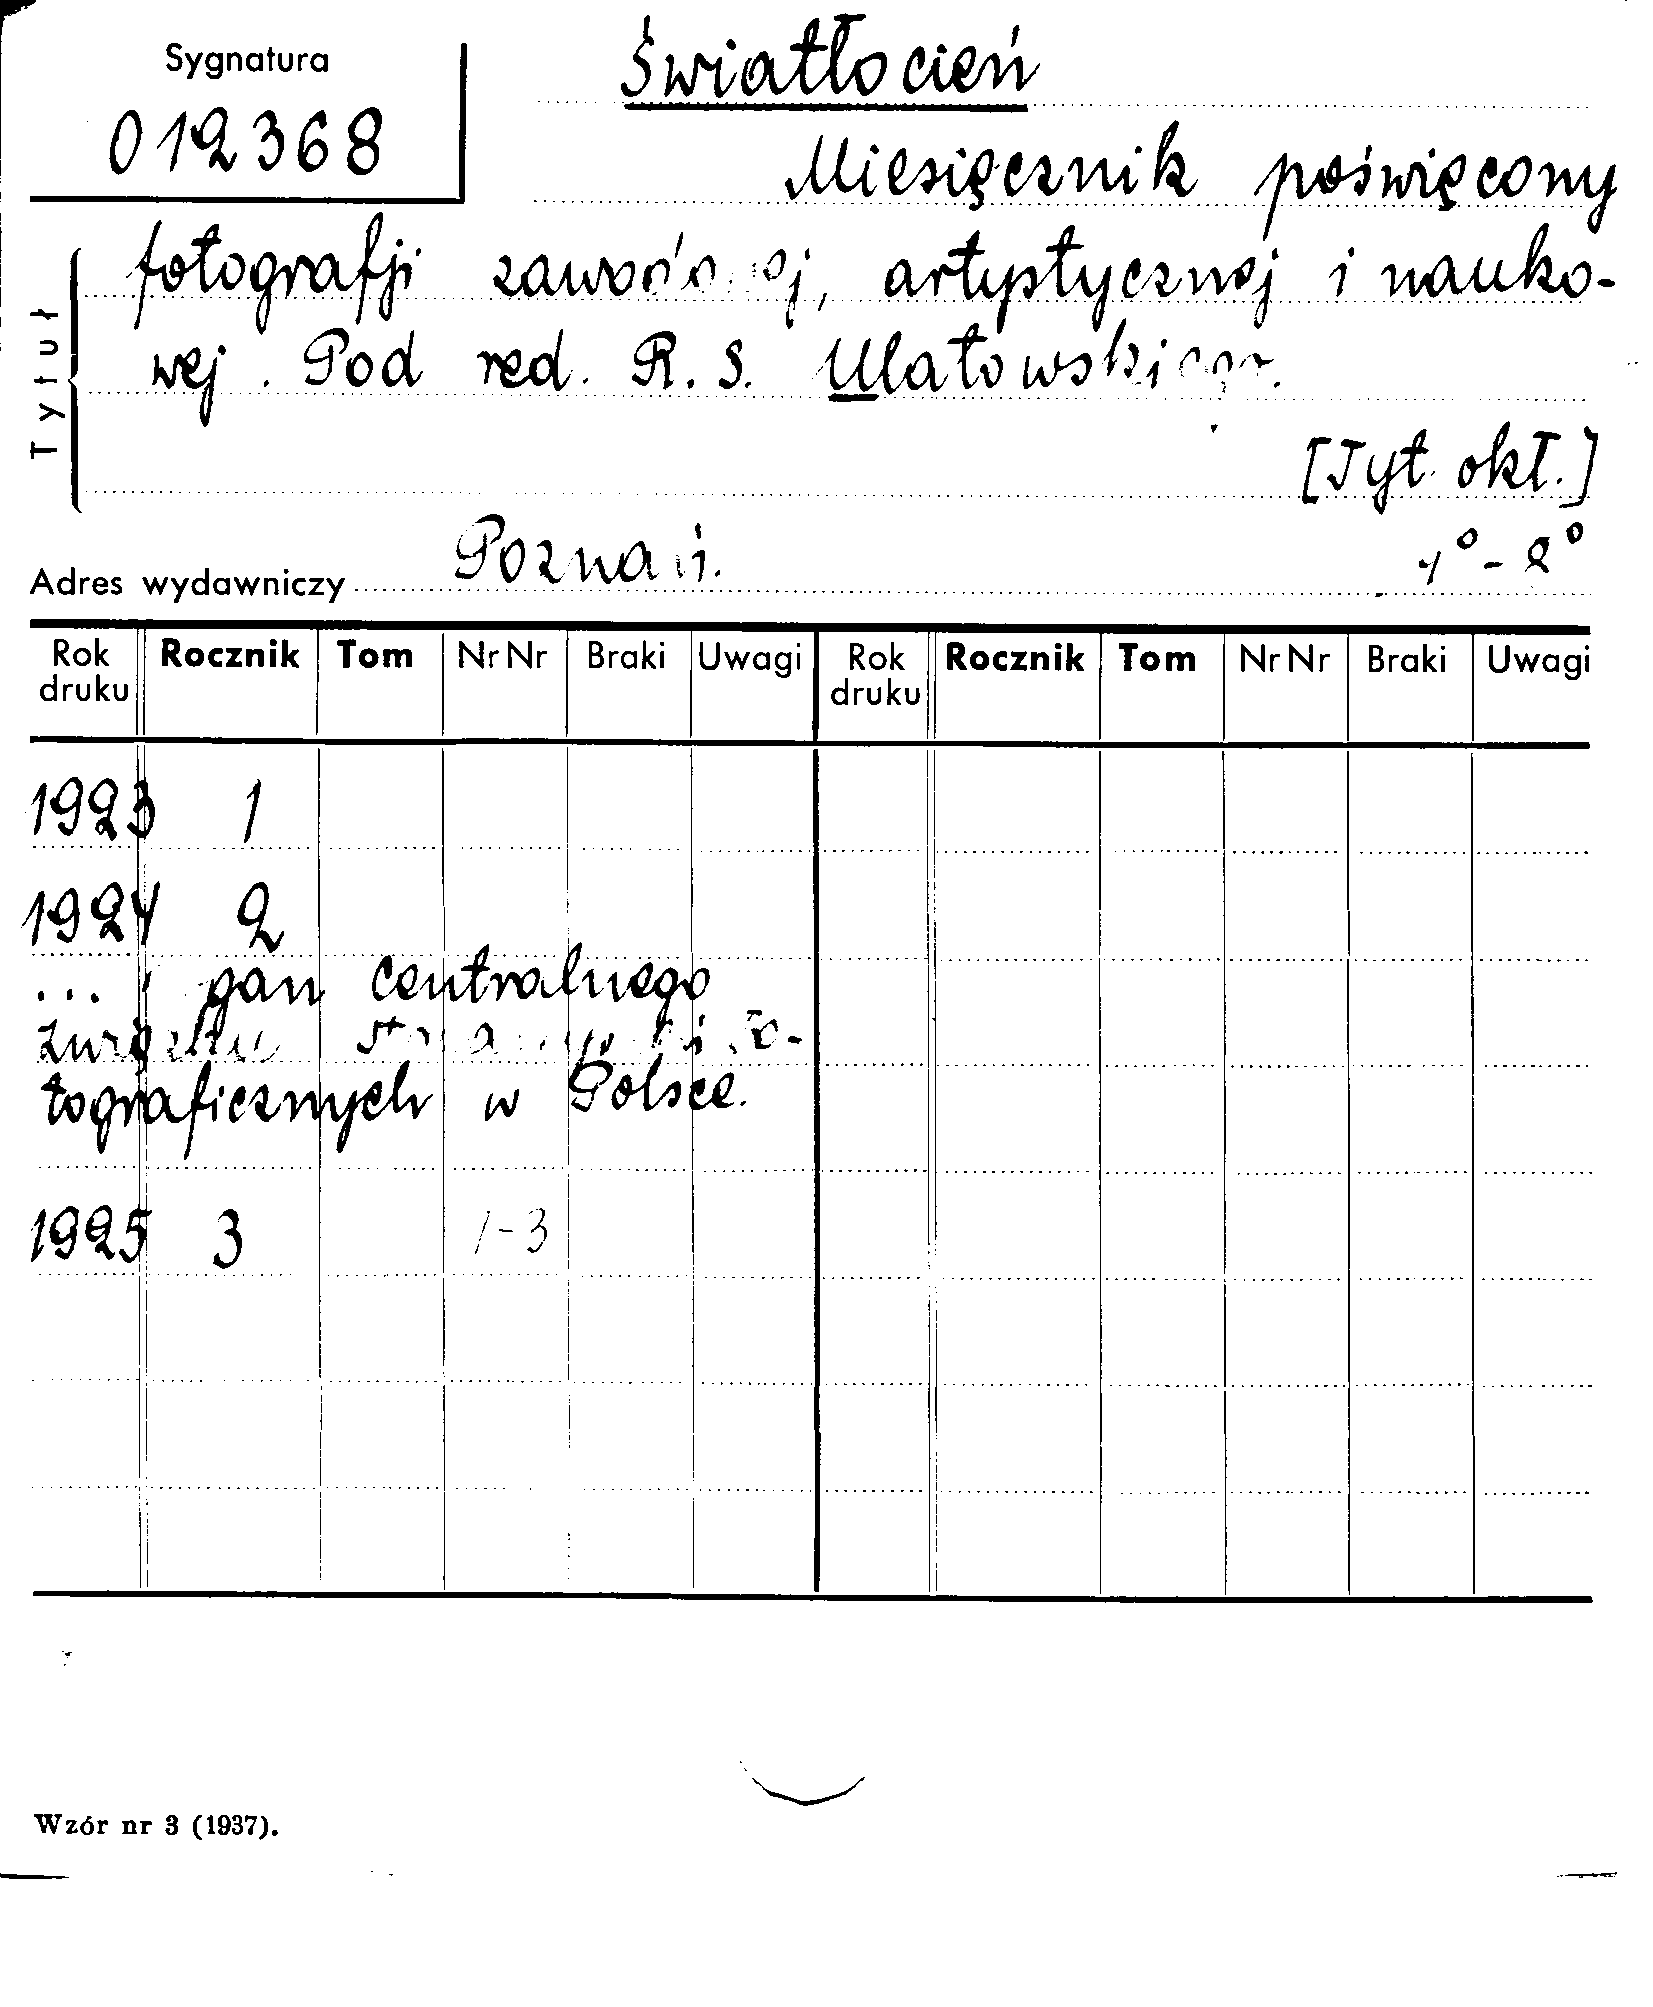 Sygnatura
012368
Światłocień
Miesięcznik poświęcony
fotografji zawodowej, artystycznej i nauko-
wej. Pod red. R. S. Ulatowskiego.
[Tyt. okł.]
Tytuł
Adres wydawniczy Poznań. 4° - 2°
Rok druku Rocznik Tom Nr Nr Braki Uwagi Rok druku Rocznik Tom Nr Nr Braki Uwagi
1923 1
1924 2
... centralnego
związku
tograficznych w Polsce.
1925 3 1-3
Wzór nr 3 (1937).